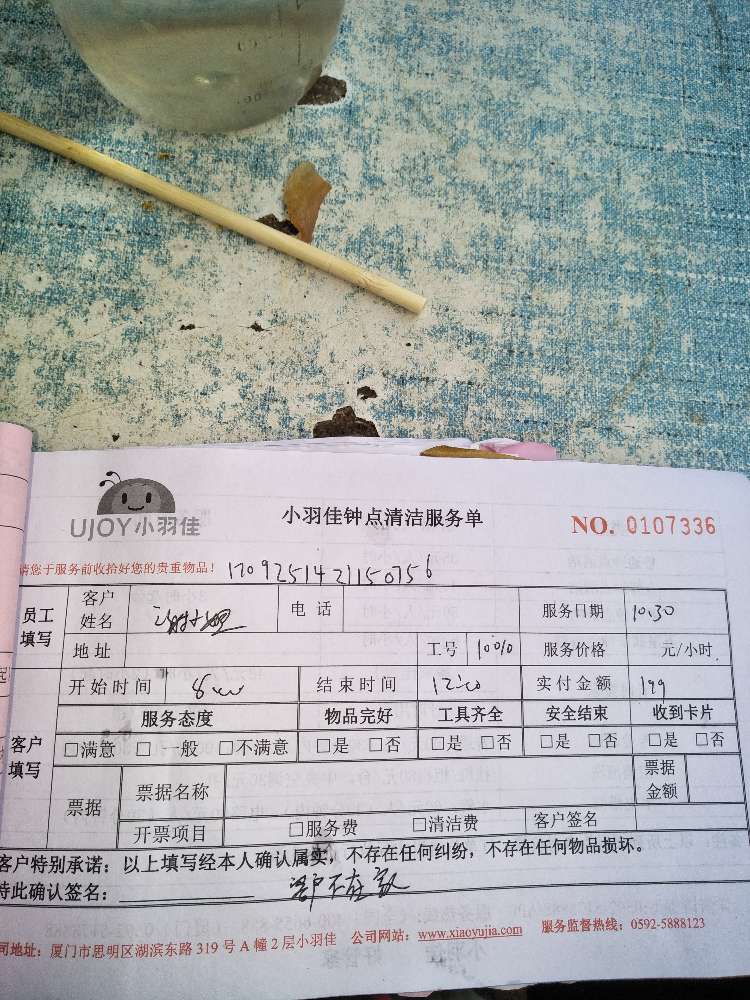 UJOY小羽佳
小羽佳钟点清洁服务单
NO. 0107336
请您于服务前收拾好您的贵重物品！ 170925142115075６
员工填写 客户姓名 谢小姐 电话 服务日期 10.30
地址 工号 10010 服务价格 元/小时
客户填写 开始时间 8:00 结束时间 12:00 实付金额 199
服务态度 物品完好 工具齐全 安全结束 收到卡片
□满意 □一般 □不满意 □是 □否 □是 □否 □是 □否 □是 □否
票据 票据名称 票据金额
开票项目 □服务费 □清洁费 客户签名
客户特别承诺：以上填写经本人确认属实，不存在任何纠纷，不存在任何物品损坏。
特此确认签名： 客户不在家
司地址：厦门市思明区湖滨东路 319 号 A 幢 2 层小羽佳 公司网站：www.xiaoyujia.com 服务监督热线：0592-5888123